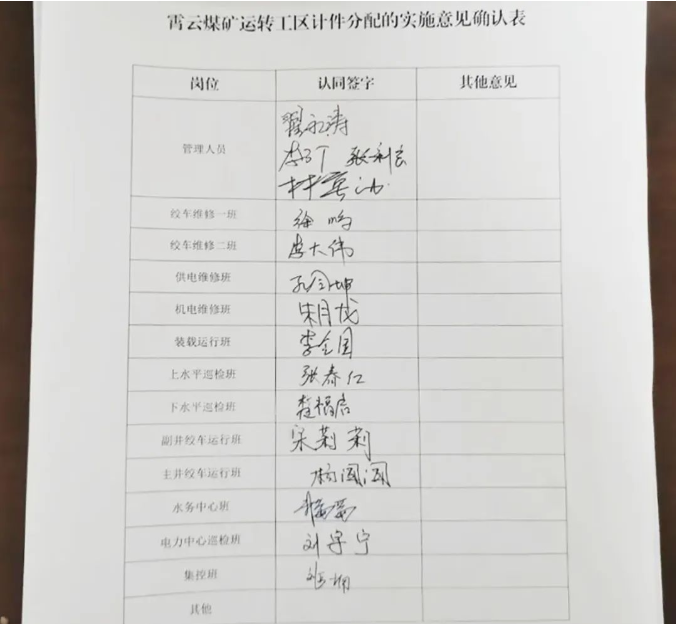 霄云煤矿运转工区计件分配的实施意见确认表
岗位 认同签字 其他意见
管理人员 翟永涛
张利民
绞车维修一班 徐鸣
绞车维修二班 李大伟
供电维修班
机电维修班 朱月龙
装载运行班 李全国
上水平巡检班 张春仁
下水平巡检班
副井绞车运行班 宋莉莉
主井绞车运行班
水务中心班
电力中心巡检班 刘宇宁
集控班
其他